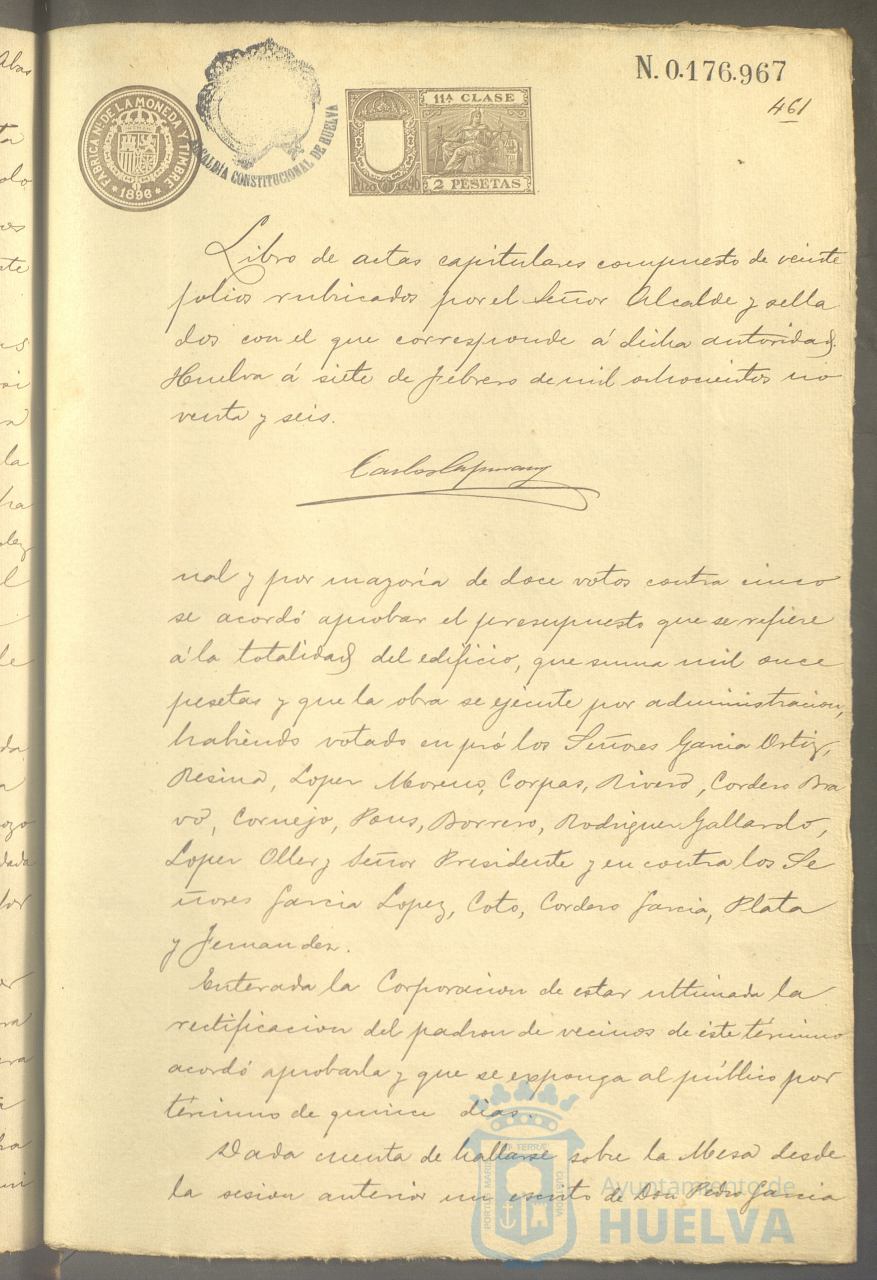 N. 0.176.967
461
FABRICA Nl. DE LA MONEDA Y TIMBRE
* 1896 *
ALCALDIA CONSTITUCIONAL DE HUELVA
11ª CLASE
2 PESETAS
Libro de actas capitulares compuesto de veinte
folios rubricados por el Señor Alcalde y sella
dos con el que corresponde á dicha autoridad.
Huelva á siete de Febrero de mil ochocientos no
venta y seis.
Carlos
nal y por mayoría de doce votos contra cinco
se acordó aprobar el presupuesto que se refiere
á la totalidad del edificio, que suma mil once
pesetas y que la obra se ejecute por administracion,
habiendo votado en pró los Señores Garcia Ortiz,
Resina, Lopez Moreno, Corpas, Rivero, Cordero Bra
vo, Cornejo, Pons, Borrero, Rodriguez Gallardo,
Lopez Oller y Señor Presidente y en contra los Se
ñores Garcia Lopez, Coto, Cordero Garcia, Plata
y Fernandez.
Enterada la Corporacion de estar ultimada la
rectificacion del padron de vecinos de este término
acordó aprobarla y que se exponga al público por
término de quince dias.
Dada cuenta de hallarse sobre la Mesa desde
la sesion anterior un escrito de Don Pedro Garcia
Ayuntamiento de
HUELVA